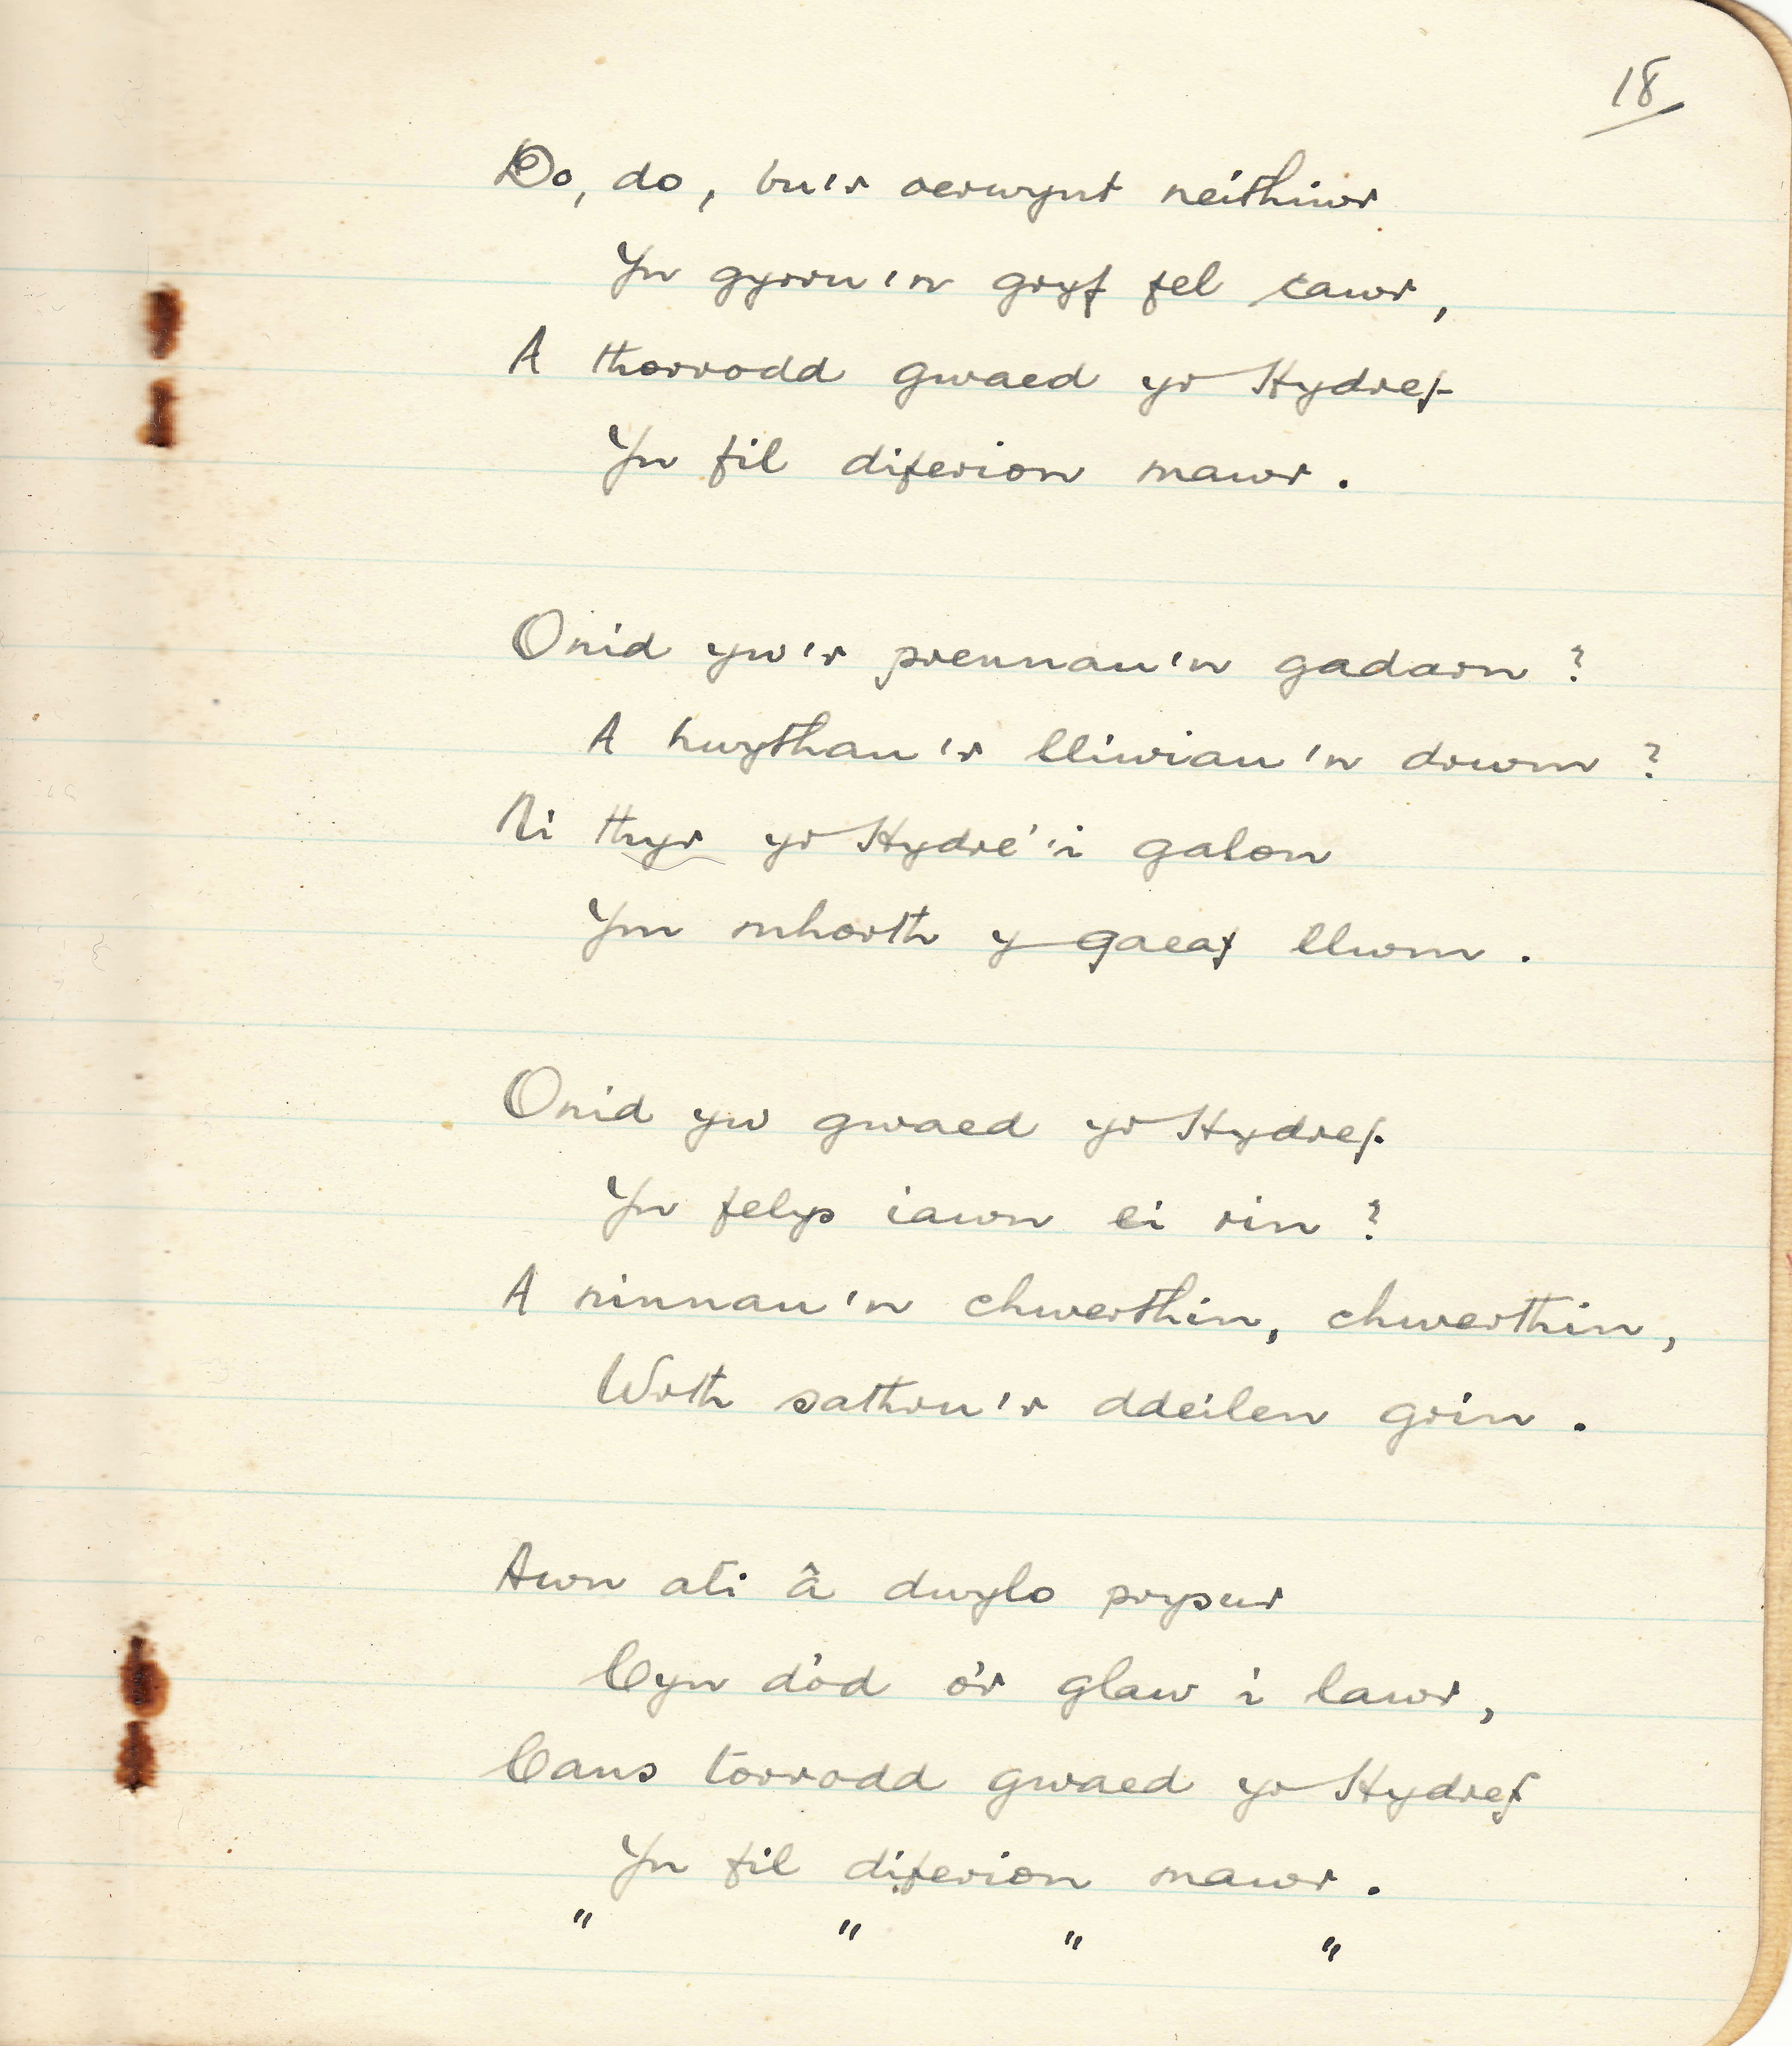 18
Do, do, bu'r oerwynt neithiwr
Yn gyrru'n gryf fel cawr,
A thorrodd gwaed yr Hydref
Yn fil diferion mawr.
Onid yw'r prennau'n gadarn?
A hwythau'r lliwiau'n drwm?
Ni thyr yr Hydre' 'i galon
Ym mhorth y gaeaf llwm.
Onid yw gwaed yr Hydref
Yn felys iawn ei rin?
A ninnau'n chwerthin, chwerthin,
Wrth sathru'r ddeilen grin.
Awn ati â dwylo prysur
Cyn dod o'r glaw i lawr,
Cans torrodd gwaed yr Hydref
Yn fil diferion mawr.
" " " "